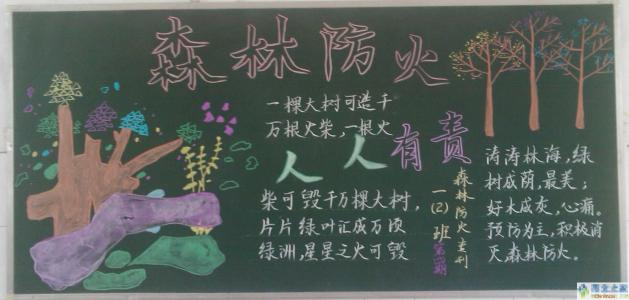 森林防火
一棵大树可造千
万根火柴,一根火
人人有责
柴可毁千万棵大树,
片片绿叶汇成万顷
绿洲,星星之火可毁
森林防火专刊
一(2)班
第一期
涛涛林海,绿
树成荫,最美;
好木成灰,心痛。
预防为主,积极消
灭森林防火。